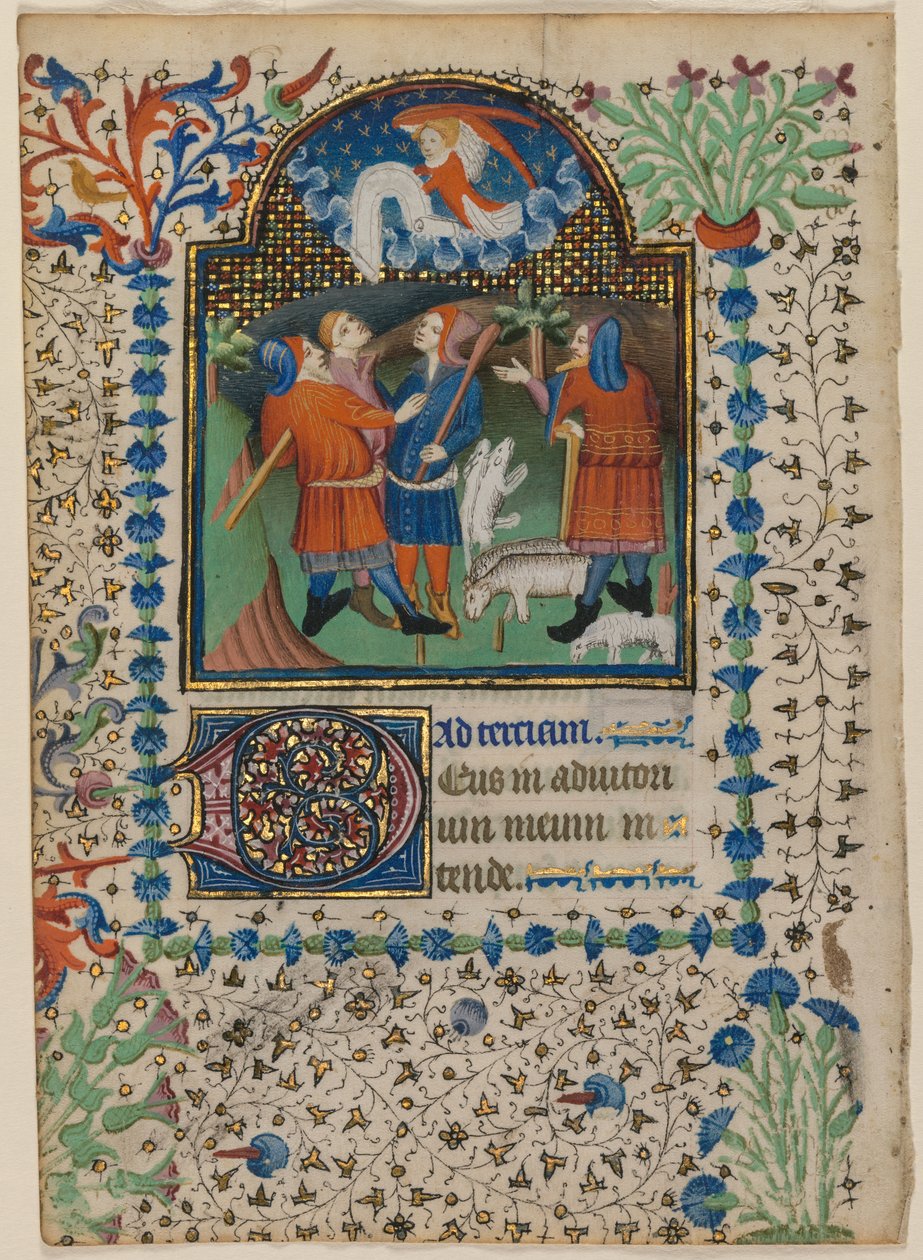 Ad terciam.
DEus in adiutori
um meum in
tende.